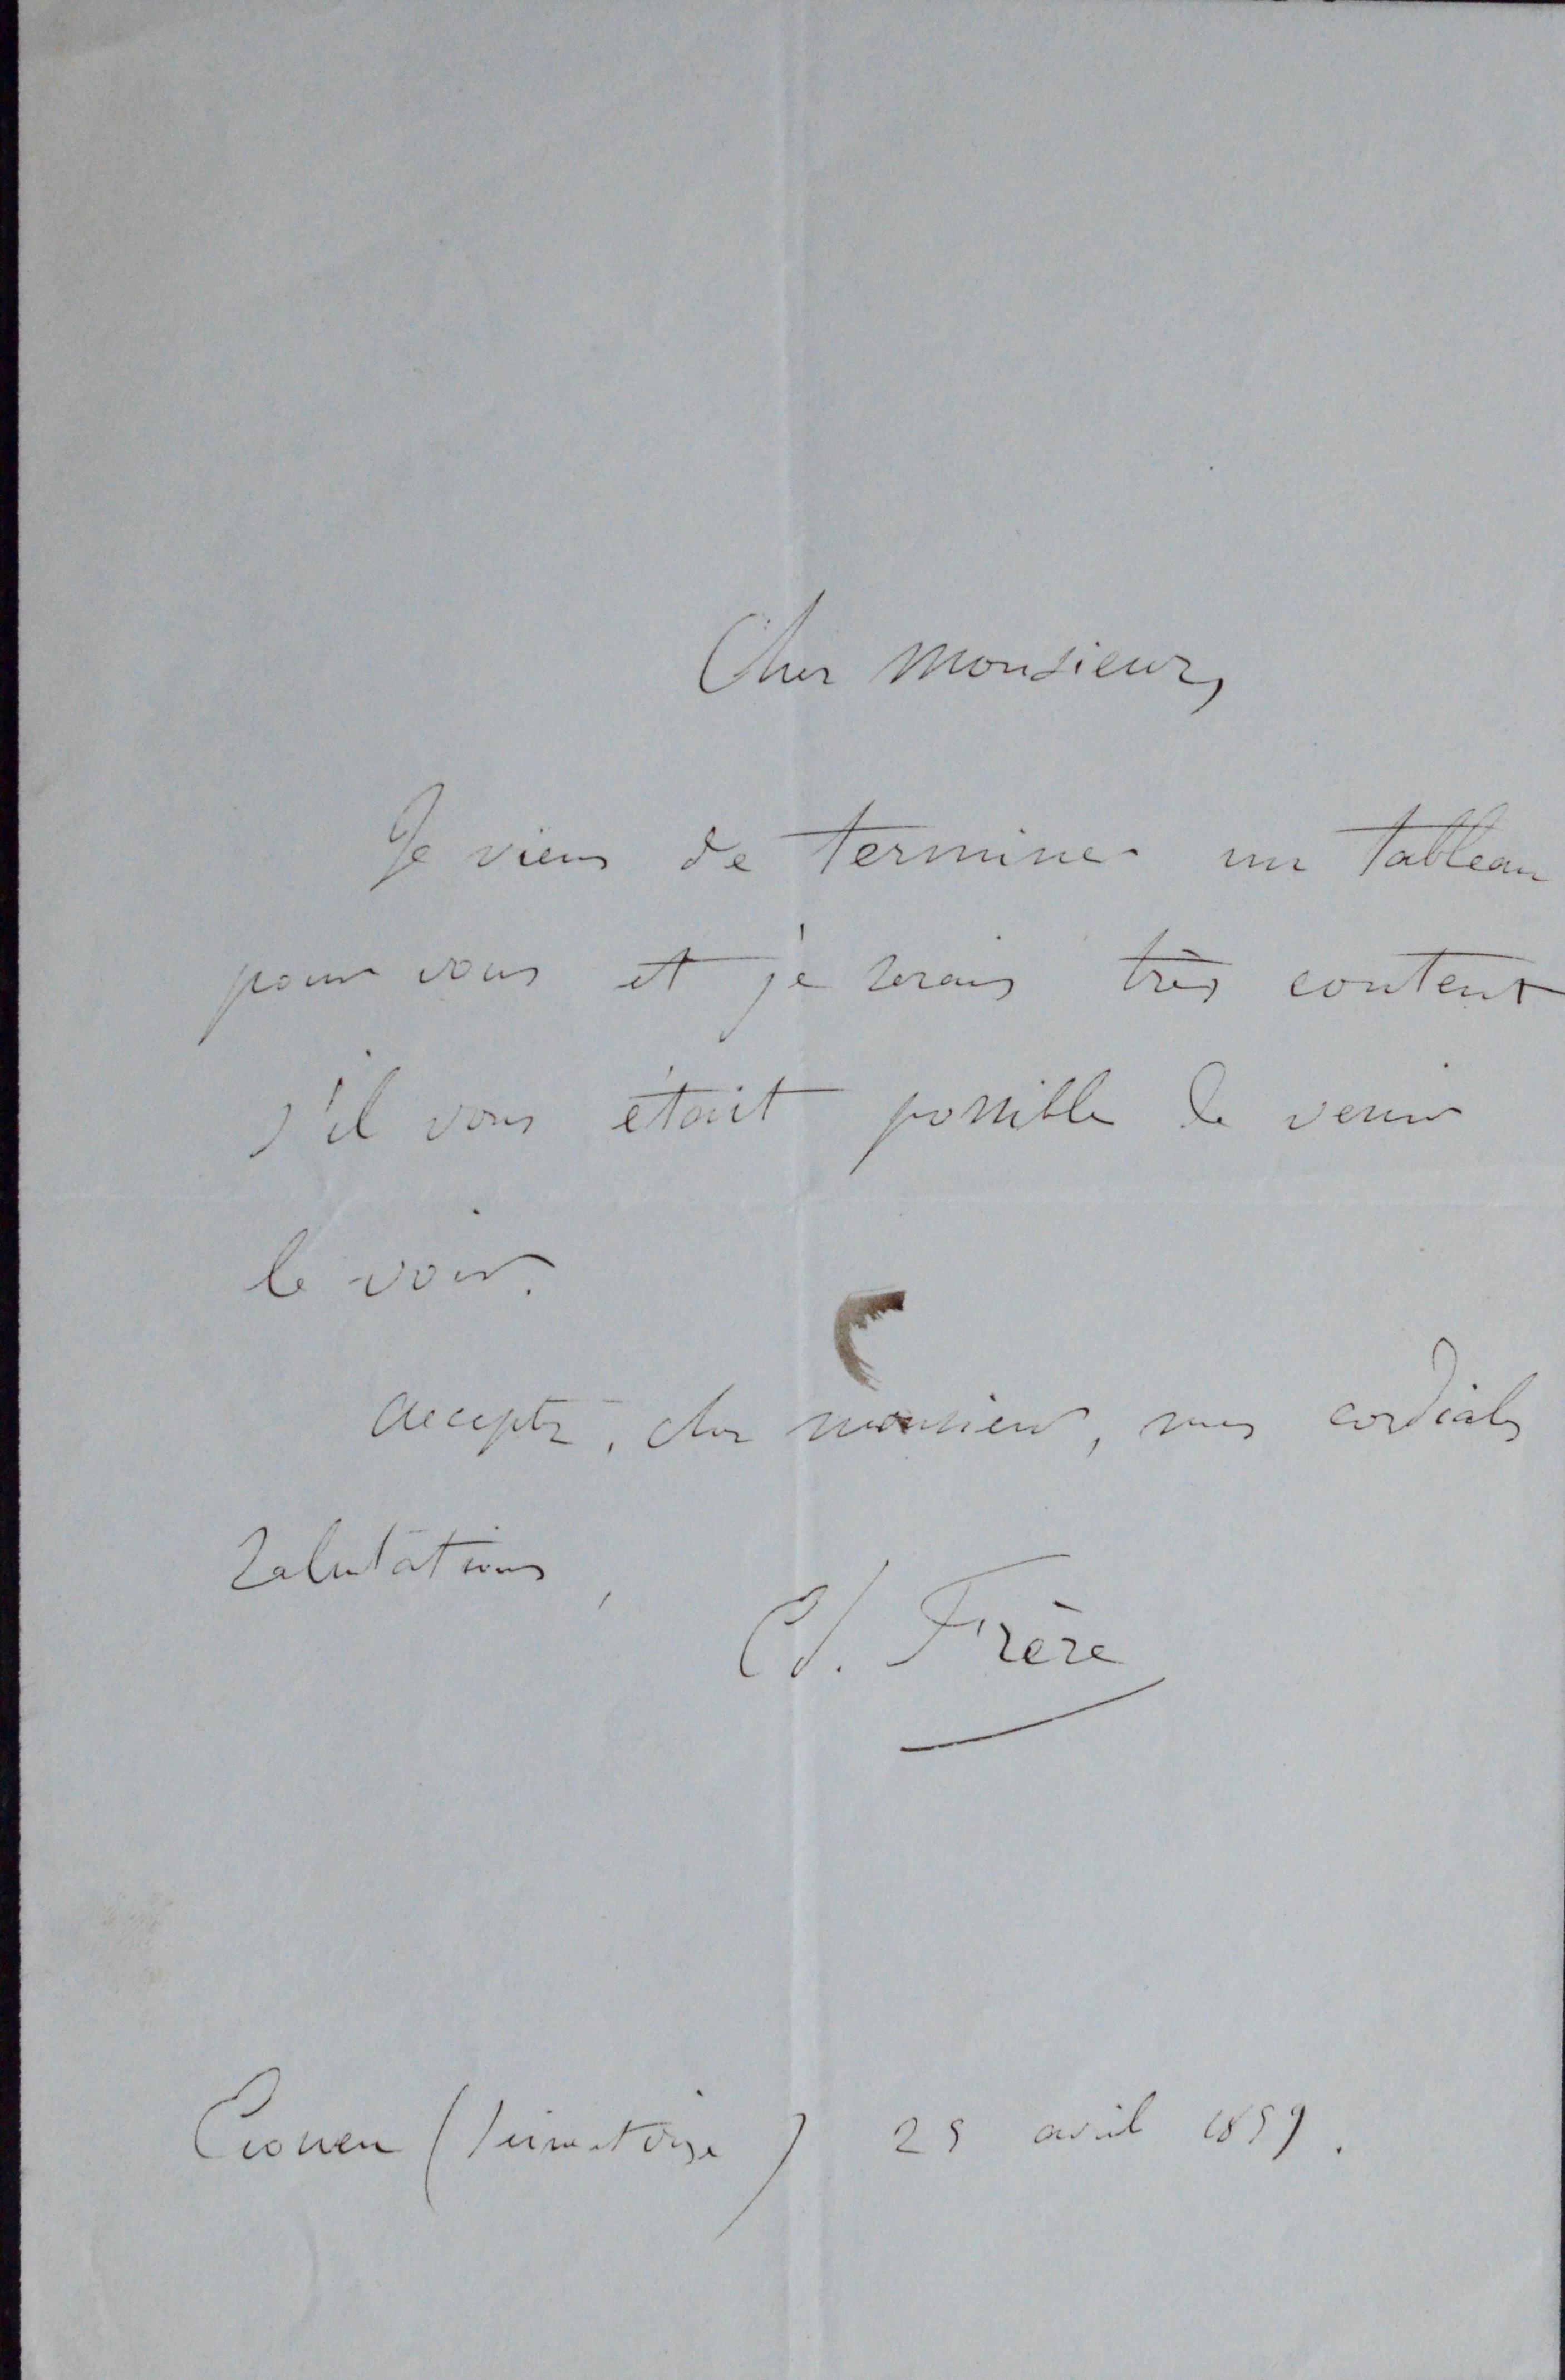 Cher Monsieur,
Je viens de terminer un tableau
pour vous et je serais très content
s'il vous était possible de venir
le voir.
acceptez, cher monsieur, mes cordiales
salutations,
Ed. Frère
Ecouen (Seine et Oise) 25 avril 1859.